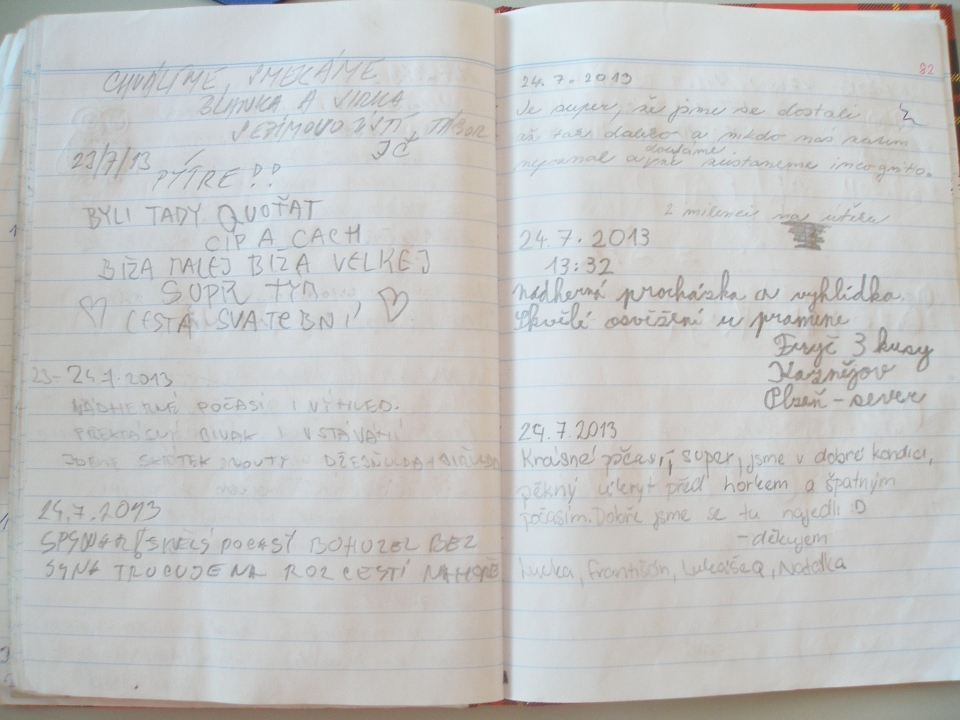 CHVÁLÍME, SMEKÁME
BLANKA A JIRKA
SEZIMOVO ÚSTÍ, TÁBOR
JČ
23/7/13
PÝTRE!!
BYLI TADY QUOŤAT
CIP A CACH
BÍŽA MALEJ BÍŽA VELKEJ
SUPR TÝM
CESTA SVATEBNÍ
23-24.7.2013
NÁDHERNÉ POČASÍ I VÝHLED.
BIVAK I VSTÁVÁNÍ
24.7.2013
POČASÍ BOHUZEL BEZ
SYNA TRUCUJE NA ROZCESTÍ NAHOŘE
82
24.7.2013
Je super, že jsme se dostali
až tak daleko a nikdo nás
nepoznal a doufáme zůstaneme incognito.
2 milenci na útěku
24.7.2013
13:32
Nádherná procházka a vyhlídka.
Skvělé osvěžení u pramene
Fryč 3 kusy
Kaznějov
Plzeň - sever
24.7.2013
Krásné počasí, super, jsme v dobré kondici,
pěkný úkryt před horkem a špatným
počasím. Dobře jsme se tu najedli :D
- děkujem
Lucka, František, Lukášeq, Natálka